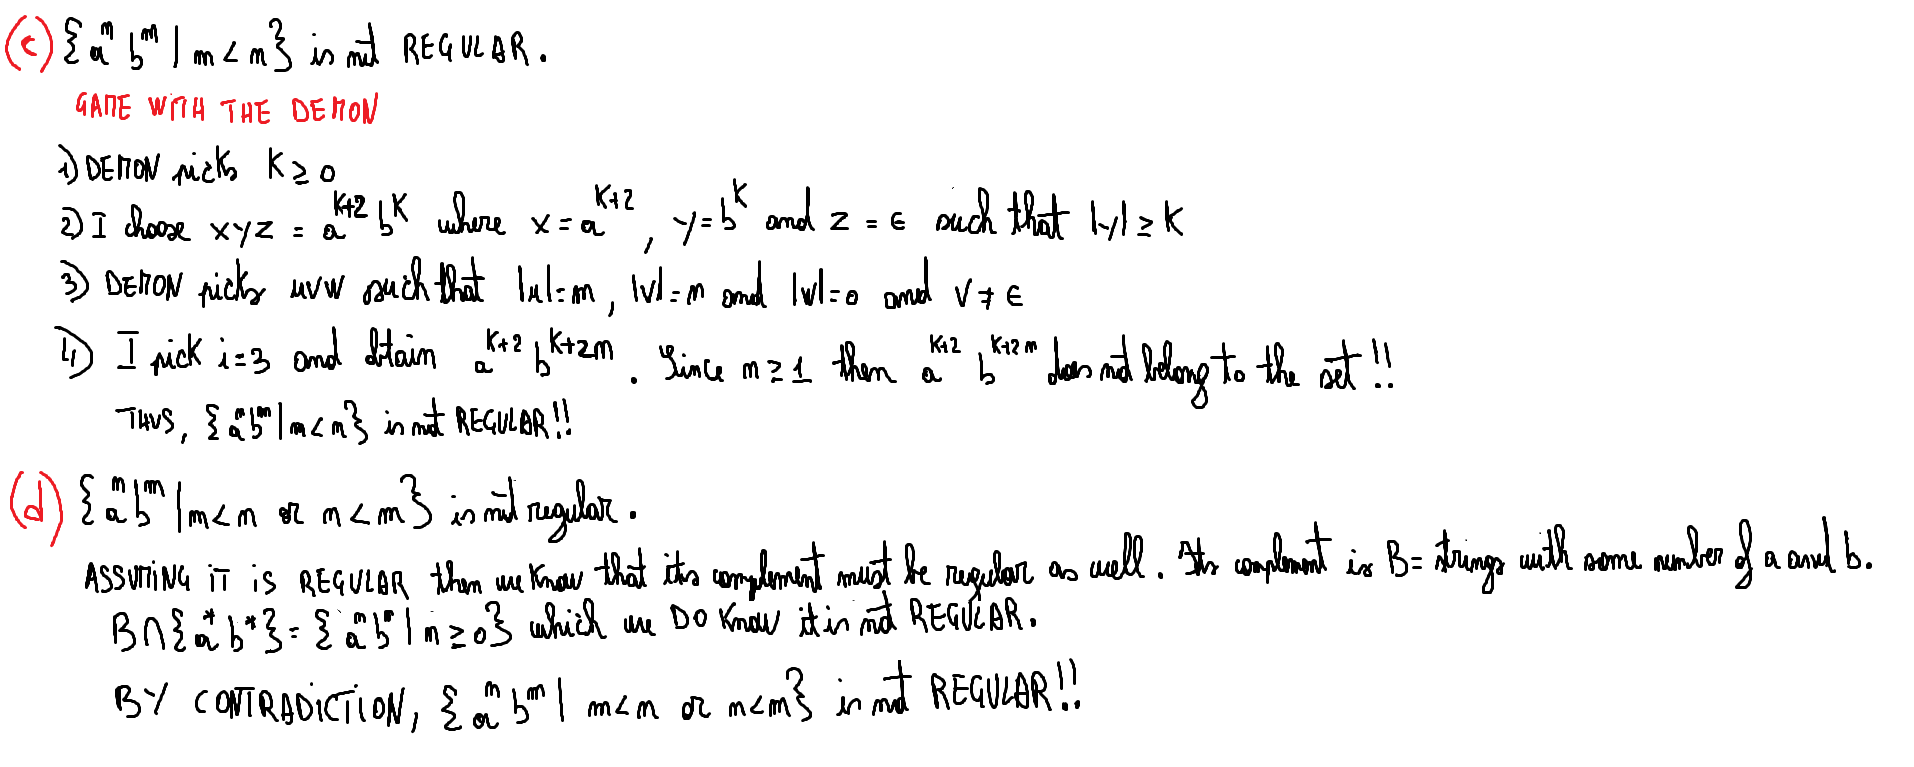 (c) {aⁿ bᵐ | m < n} is not REGULAR.
GAME WITH THE DEMON
1) DEMON picks K ≥ 0
2) I choose xyz = a^{K+2} b^K where x = a^{K+2}, y = b^K and z = ϵ such that |y| ≥ K
3) DEMON picks uvw such that |u| = m, |v| = n and |w| = 0 and V ≠ ϵ
4) I pick i=3 and obtain a^{K+2} b^{K+2n}. Since n ≥ 1 then a^{K+2} b^{K+2n} does not belong to the set!!
THUS, {aⁿ bᵐ | m < n} is not REGULAR!!
(d) {aⁿ bᵐ | m < n or n < m} is not regular.
ASSUMING IT IS REGULAR then we know that its complement must be regular as well. Its complement is B = strings with same number of a and b.
B ∩ {a* b*} = {aⁿ bⁿ | n ≥ 0} which we DO know it is not REGULAR.
BY CONTRADICTION, {aⁿ bᵐ | m < n or n < m} is not REGULAR!!